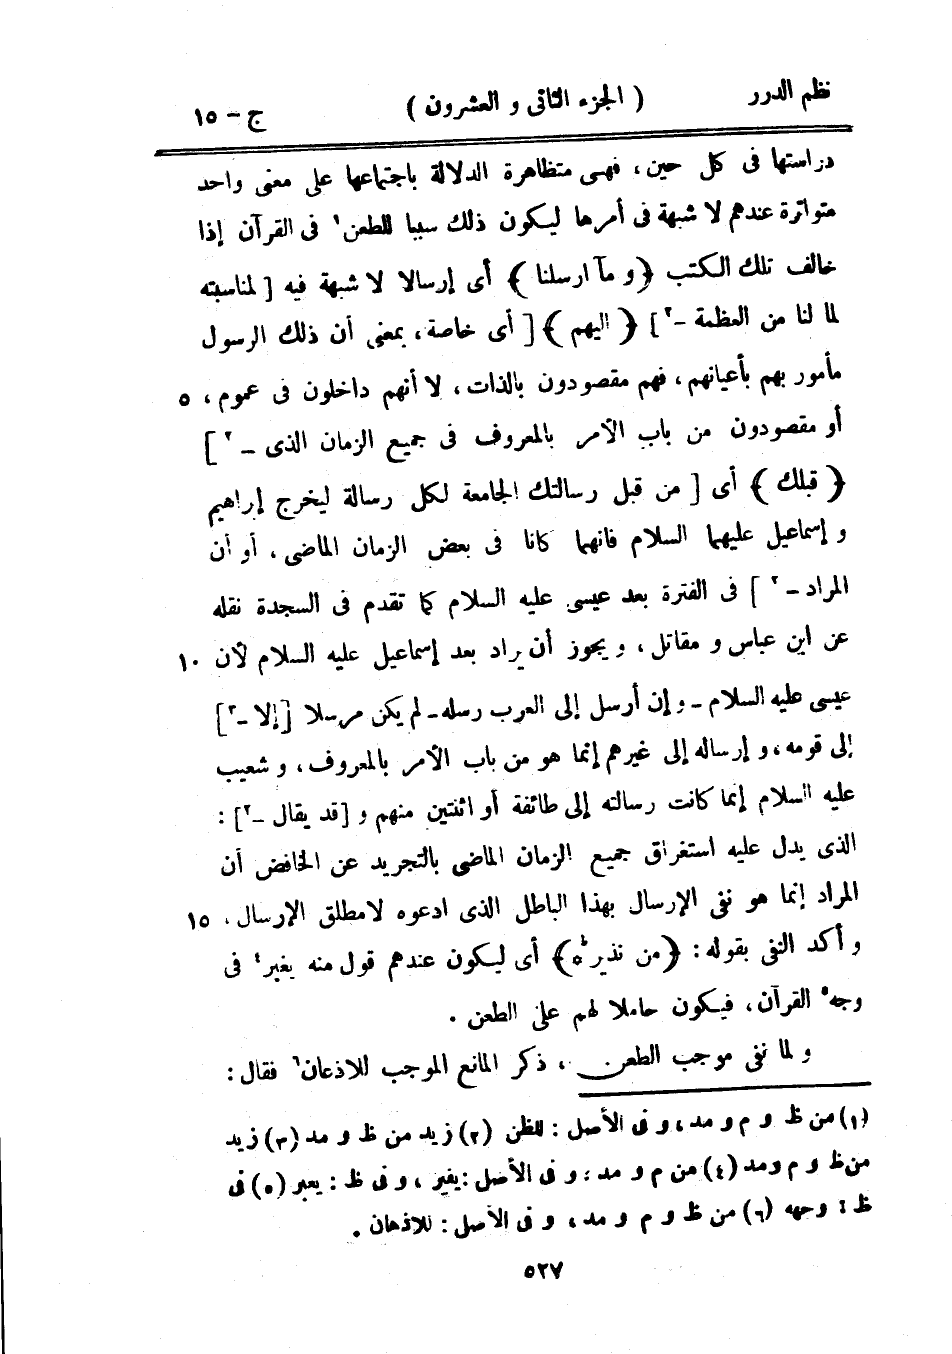 نظم الدرر ( الجزء الثانى و العشرون ) ج - ١٥
دراستها فى كل حين، فهى متظاهرة الدلالة باجتماعها على معنى واحد
متواترة عندهم لا شبهة فى أمرها ليكون ذلك سببا للطعن١ فى القرآن إذا
خالف تلك الكتب ﴿و مآ ارسلنا﴾ أى إرسالا لا شبهة فيه [ لمناسبته
لما لنا من العظمة -٢ ] ﴿ اليهم ﴾ [ أى خاصة، بمعنى أن ذلك الرسول
مأمور بهم بأعيانهم، فهم مقصودون بالذات، لا أنهم داخلون فى عموم، ٥
أو مقصودون من باب الأمر بالمعروف فى جميع الزمان الذى -٢ ]
﴿ قبلك ﴾ أى [ من قبل رسالتك الجامعة لكل رسالة ليخرج إبراهيم
و إسماعيل عليهما السلام فانهما كانا فى بعض الزمان الماضى، أو أن
المراد -٢ ] فى الفترة بعد عيسى عليه السلام كما تقدم فى السجدة نقله
عن ابن عباس و مقاتل، و يجوز أن يراد بعد إسماعيل عليه السلام لأن ١٠
عيسى عليه السلام - و إن أرسل إلى العرب رسله - لم يكن مرسلا [إلا -٣]
إلى قومه، و إرساله إلى غيرهم إنما هو من باب الأمر بالمعروف، و شعيب
عليه السلام إنما كانت رسالته إلى طائفة أو اثنتين منهم و [قد يقال -٢] :
الذى يدل عليه استغراق جميع الزمان الماضى بالتجريد عن الخافض أن
المراد إنما هو نفى الإرسال بهذا الباطل الذى ادعوه لا مطلق الإرسال، ١٥
و أكد النفى بقوله: ﴿من نذيرهٕ﴾ أى ليكون عندهم قول منه يغبر٤ فى
وجه٥ القرآن، فيكون حاملا لهم على الطعن .
و لما نفى موجب الطعن ، ذكر المانع الموجب للاذعان٦ فقال :
(١) من ظ و م و مد، و فى الأصل : للظن (٢) زيد من ظ و مد (٣) زيد
من ظ و م و مد (٤) من م و مد، و فى الأصل : يفير ، و فى ظ : يعبر (٥) فى
ظ : وجهه (٦) من ظ و م و مد، و فى الأصل : للاذهان .
٥٢٧